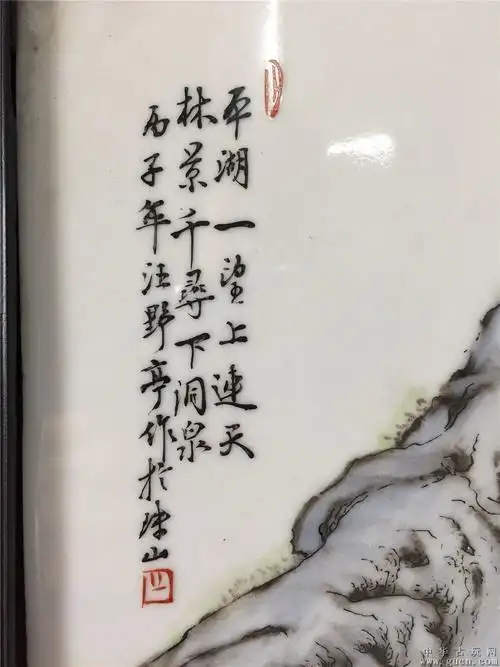 平湖一望上連天
林景千尋下洞泉
丙子年汪野亭作於珠山
中华古玩网
www.gucn.com